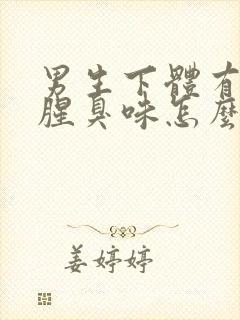 男生下體有
腥臭味怎麼
姜婷婷